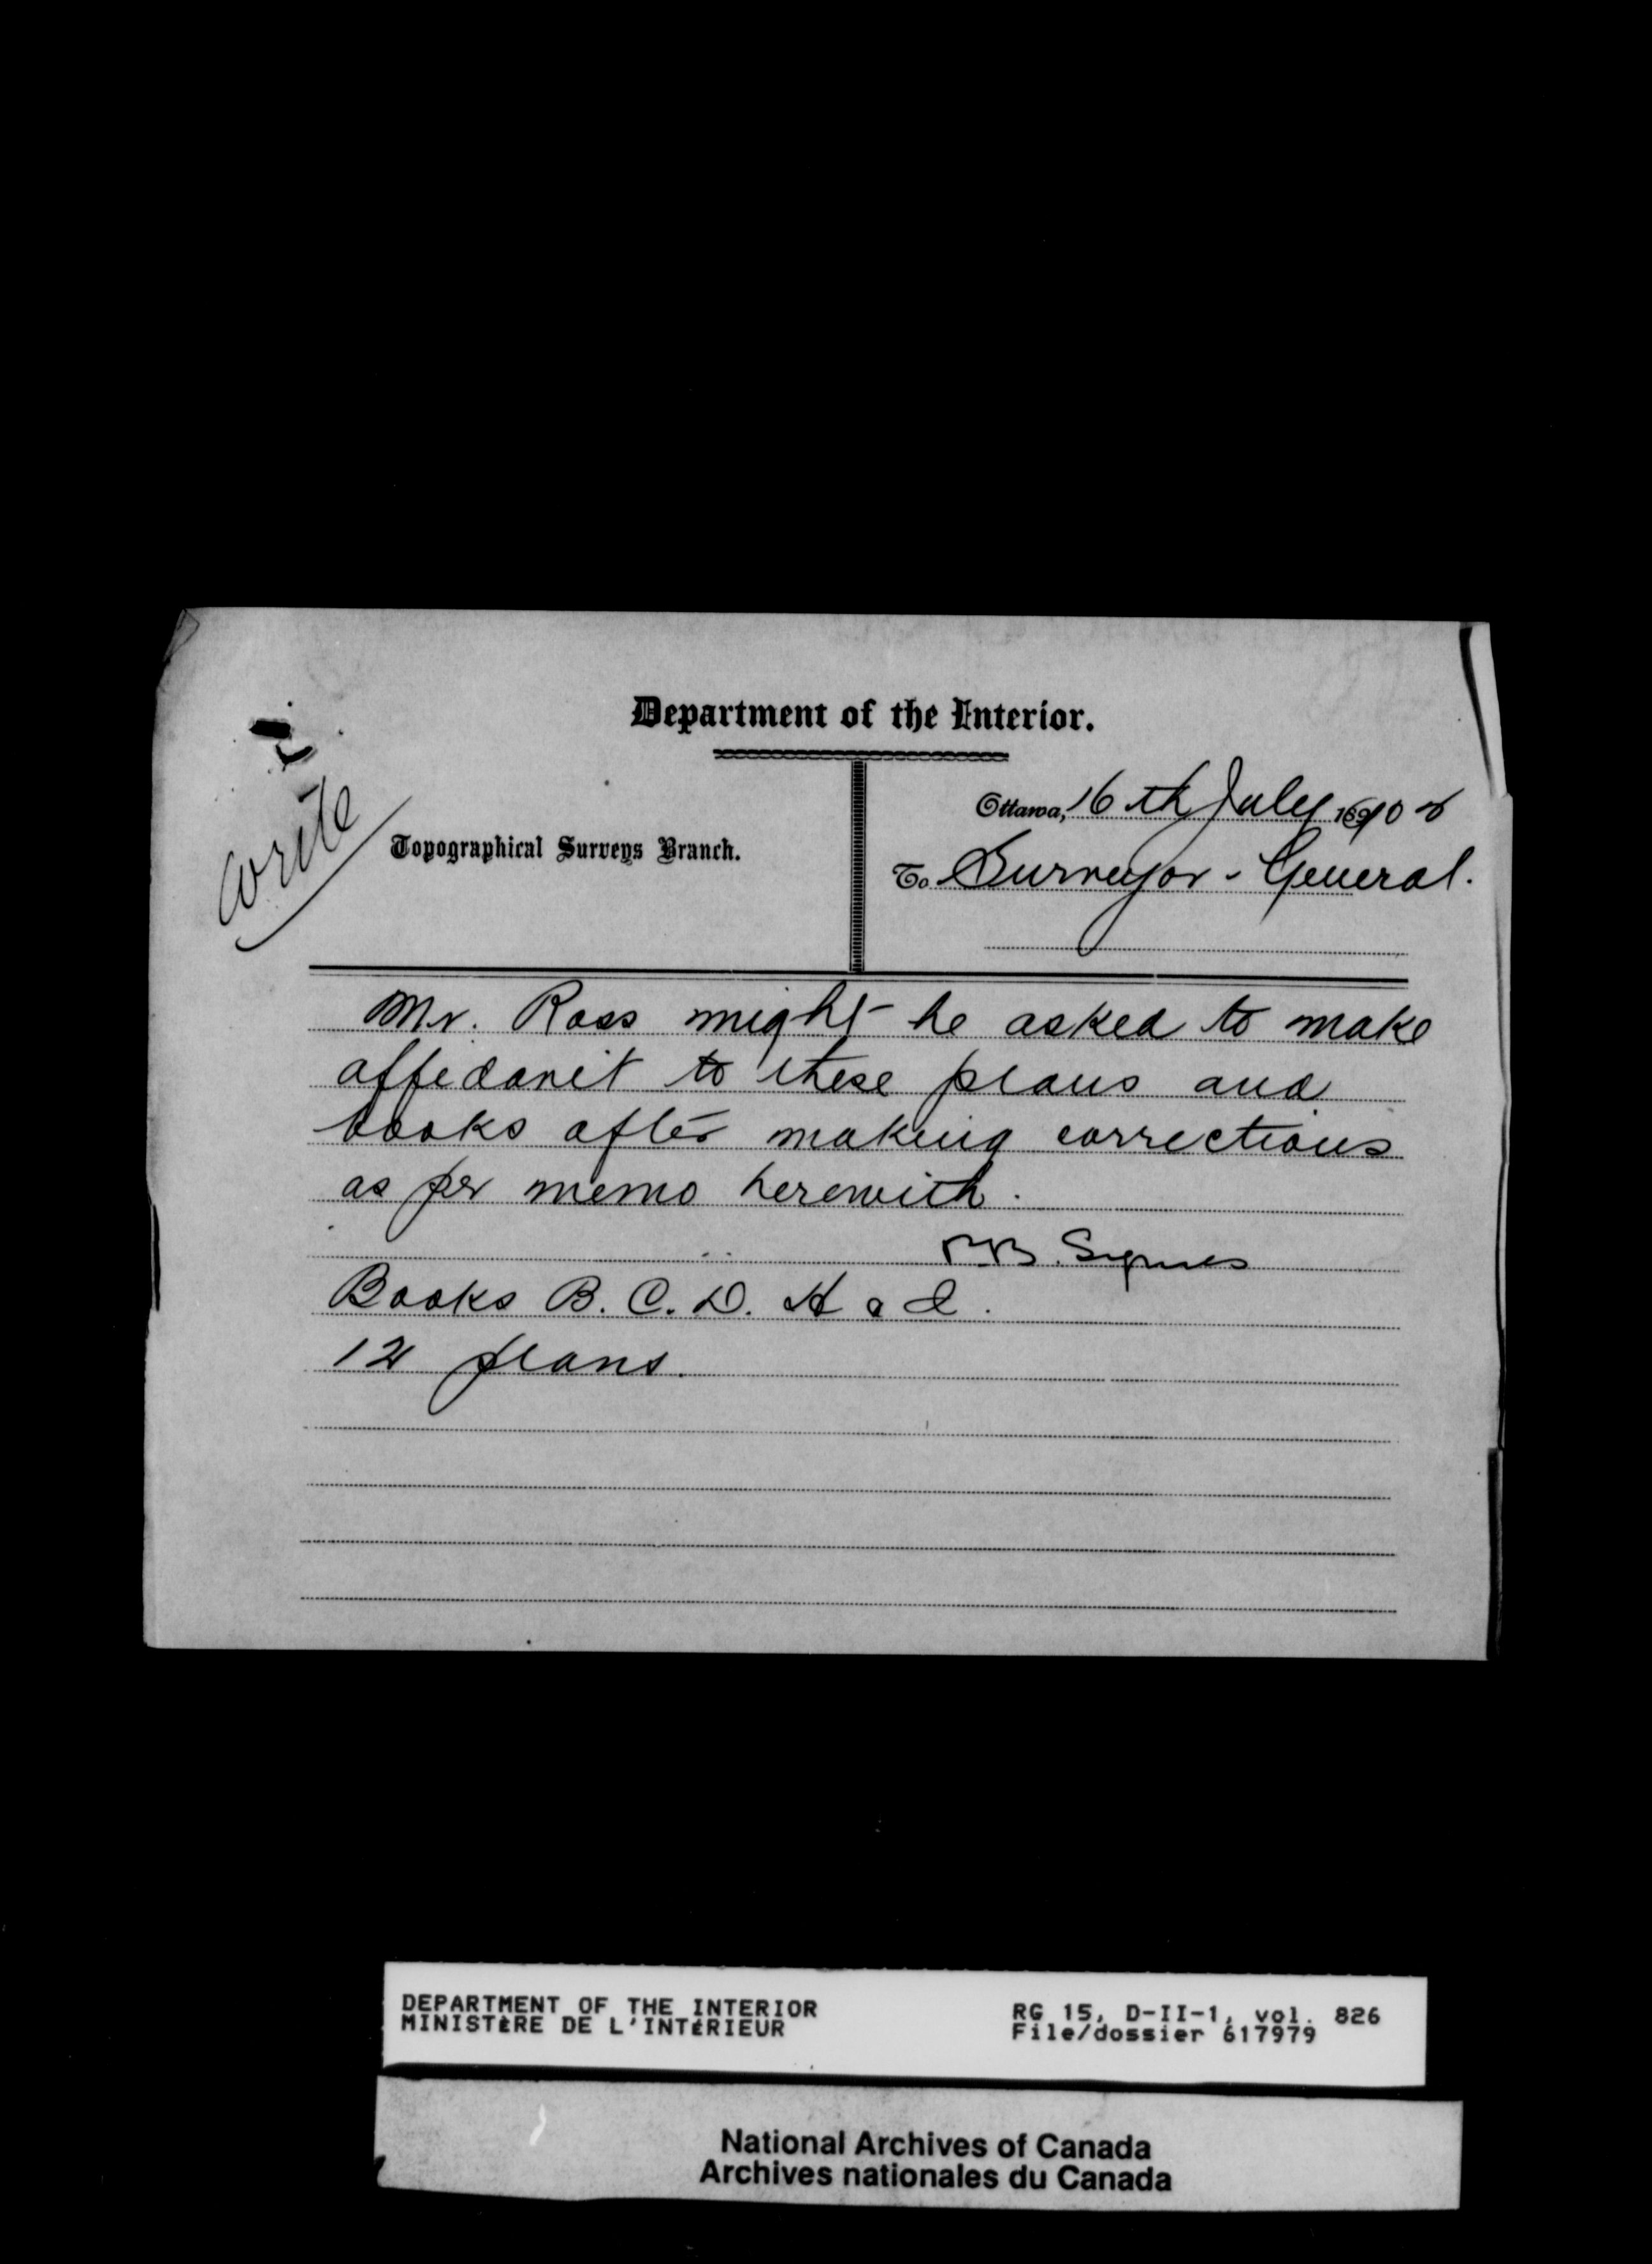 Department of the Interior.
write
Topographical Surveys Branch.
Ottawa, 16th July 190
To Surveyor-General.
Mr. Ross might be asked to make
affedavit to these plans and
books after making corrections
as per memo herewith.
Books B. C. D. H
12 plans.
DEPARTMENT OF THE INTERIOR
MINISTÈRE DE L'INTÉRIEUR
RG 15, D-II-1, vol. 826
File/dossier 617979
National Archives of Canada
Archives nationales du Canada